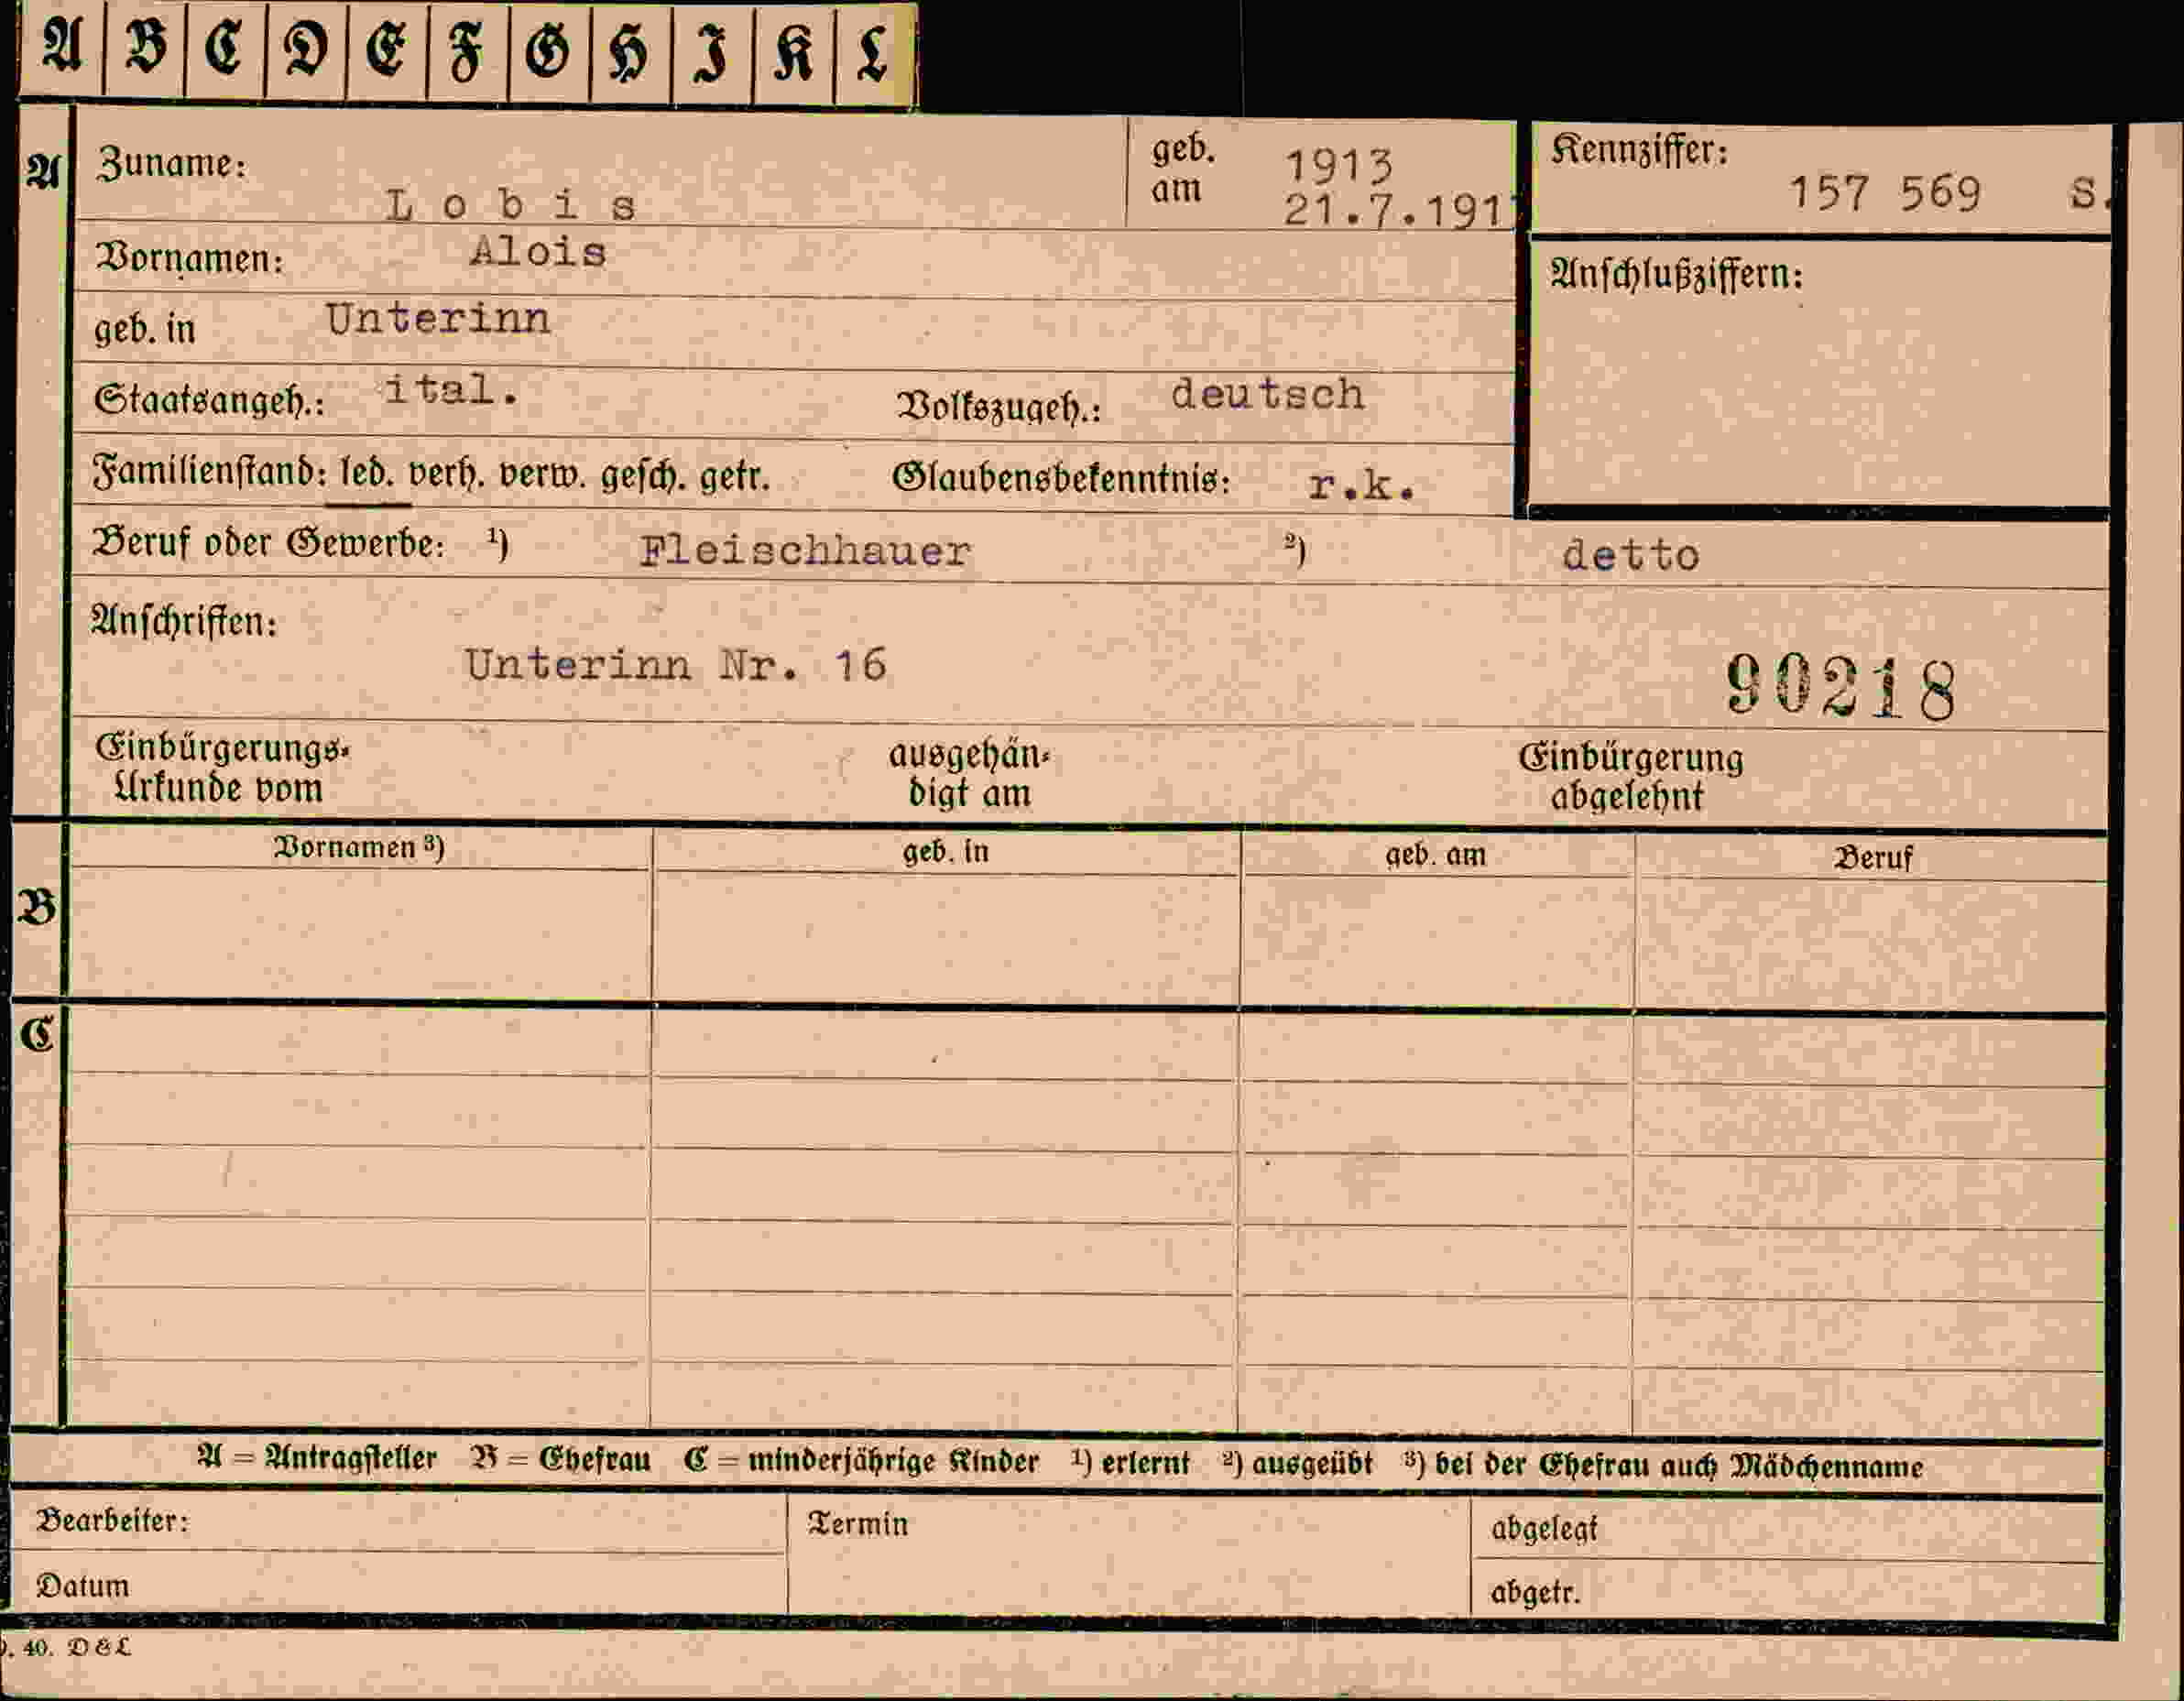 A B C D E F G H I K L
A Zuname: Lobis geb. am 1913 21.7.191 Kennziffer: 157 569 S.
Vornamen: Alois Anschlußziffern:
geb. in Unterinn
Staatsangeh.: ital. Volkszugeh.: deutsch
Familienstand: led. verh. verw. gesch. getr. Glaubensbekenntnis: r.k.
Beruf oder Gewerbe: ¹) Fleischhauer ²) detto
Anschriften:
Unterinn Nr. 16 90218
Einbürgerungs- ausgehän- Einbürgerung
Urkunde vom digt am abgelehnt
Vornamen ³) geb. in geb. am Beruf
B
C
A = Antragsteller B = Ehefrau C = minderjährige Kinder ¹) erlernt ²) ausgeübt ³) bei der Ehefrau auch Mädchenname
Bearbeiter: Termin abgelegt
Datum abgetr.
. 40. D & L